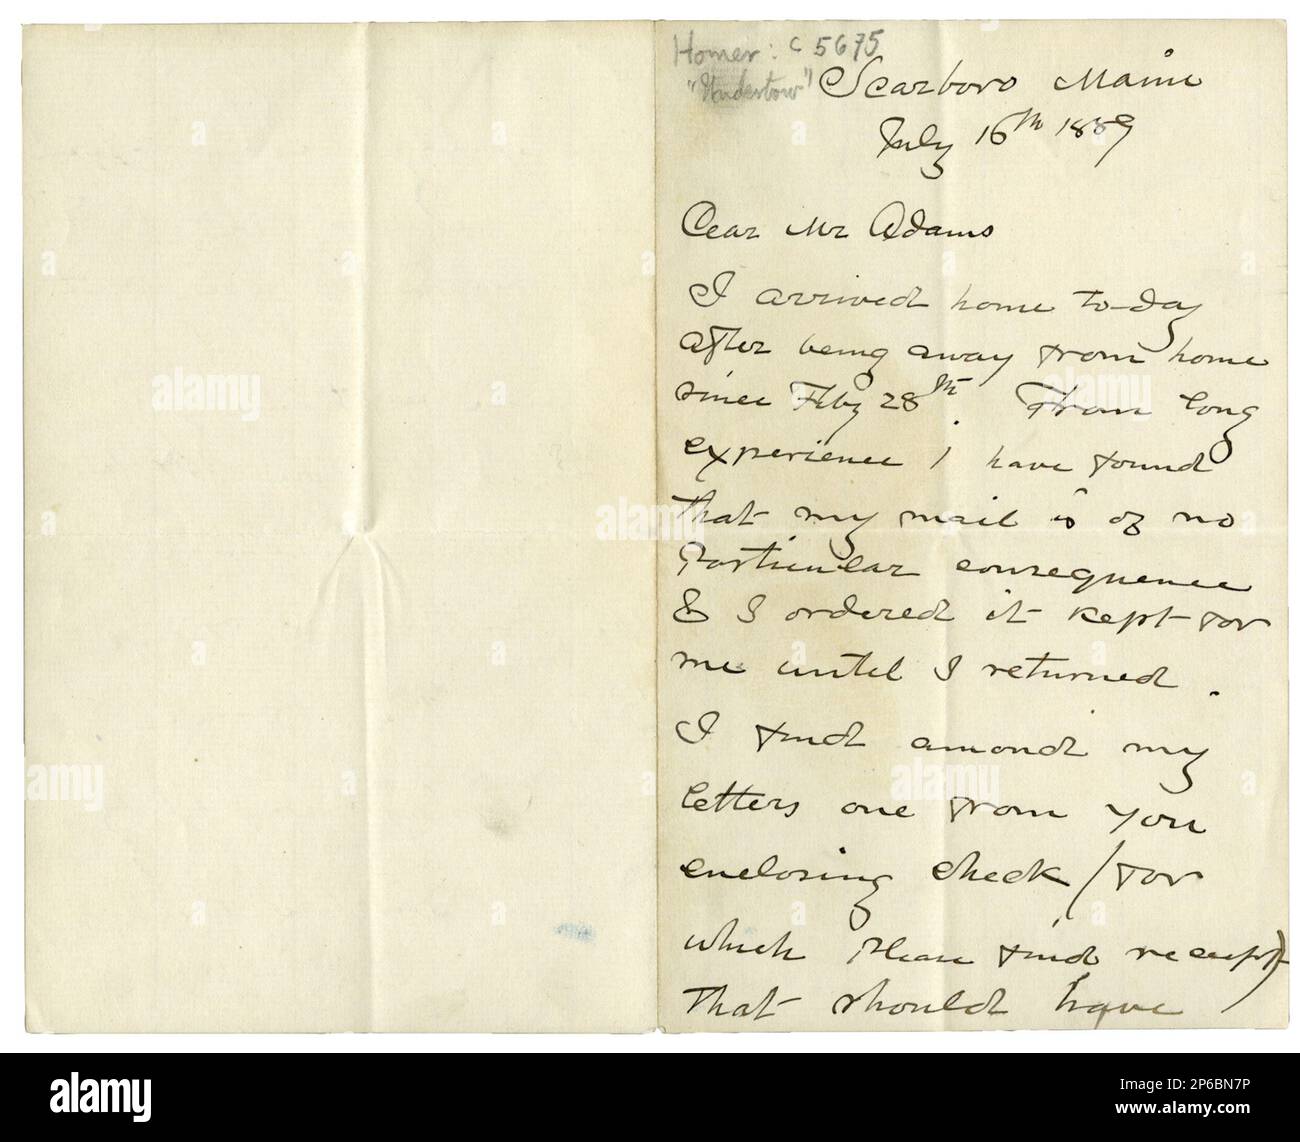 Homer: c 5675
"Undertow"
Scarboro Maine
July 16th 1889
Dear Mr Adams
I arrived home to-day
after being away from home
since Feby 28th. From long
experience I have found
that my mail is of no
particular consequence
& I ordered it kept for
me until I returned.
I find amond my
letters one from you
enclosing check (for
which please find receipt)
that should have
alamy
Image ID: 2P6BN7P
www.alamy.com